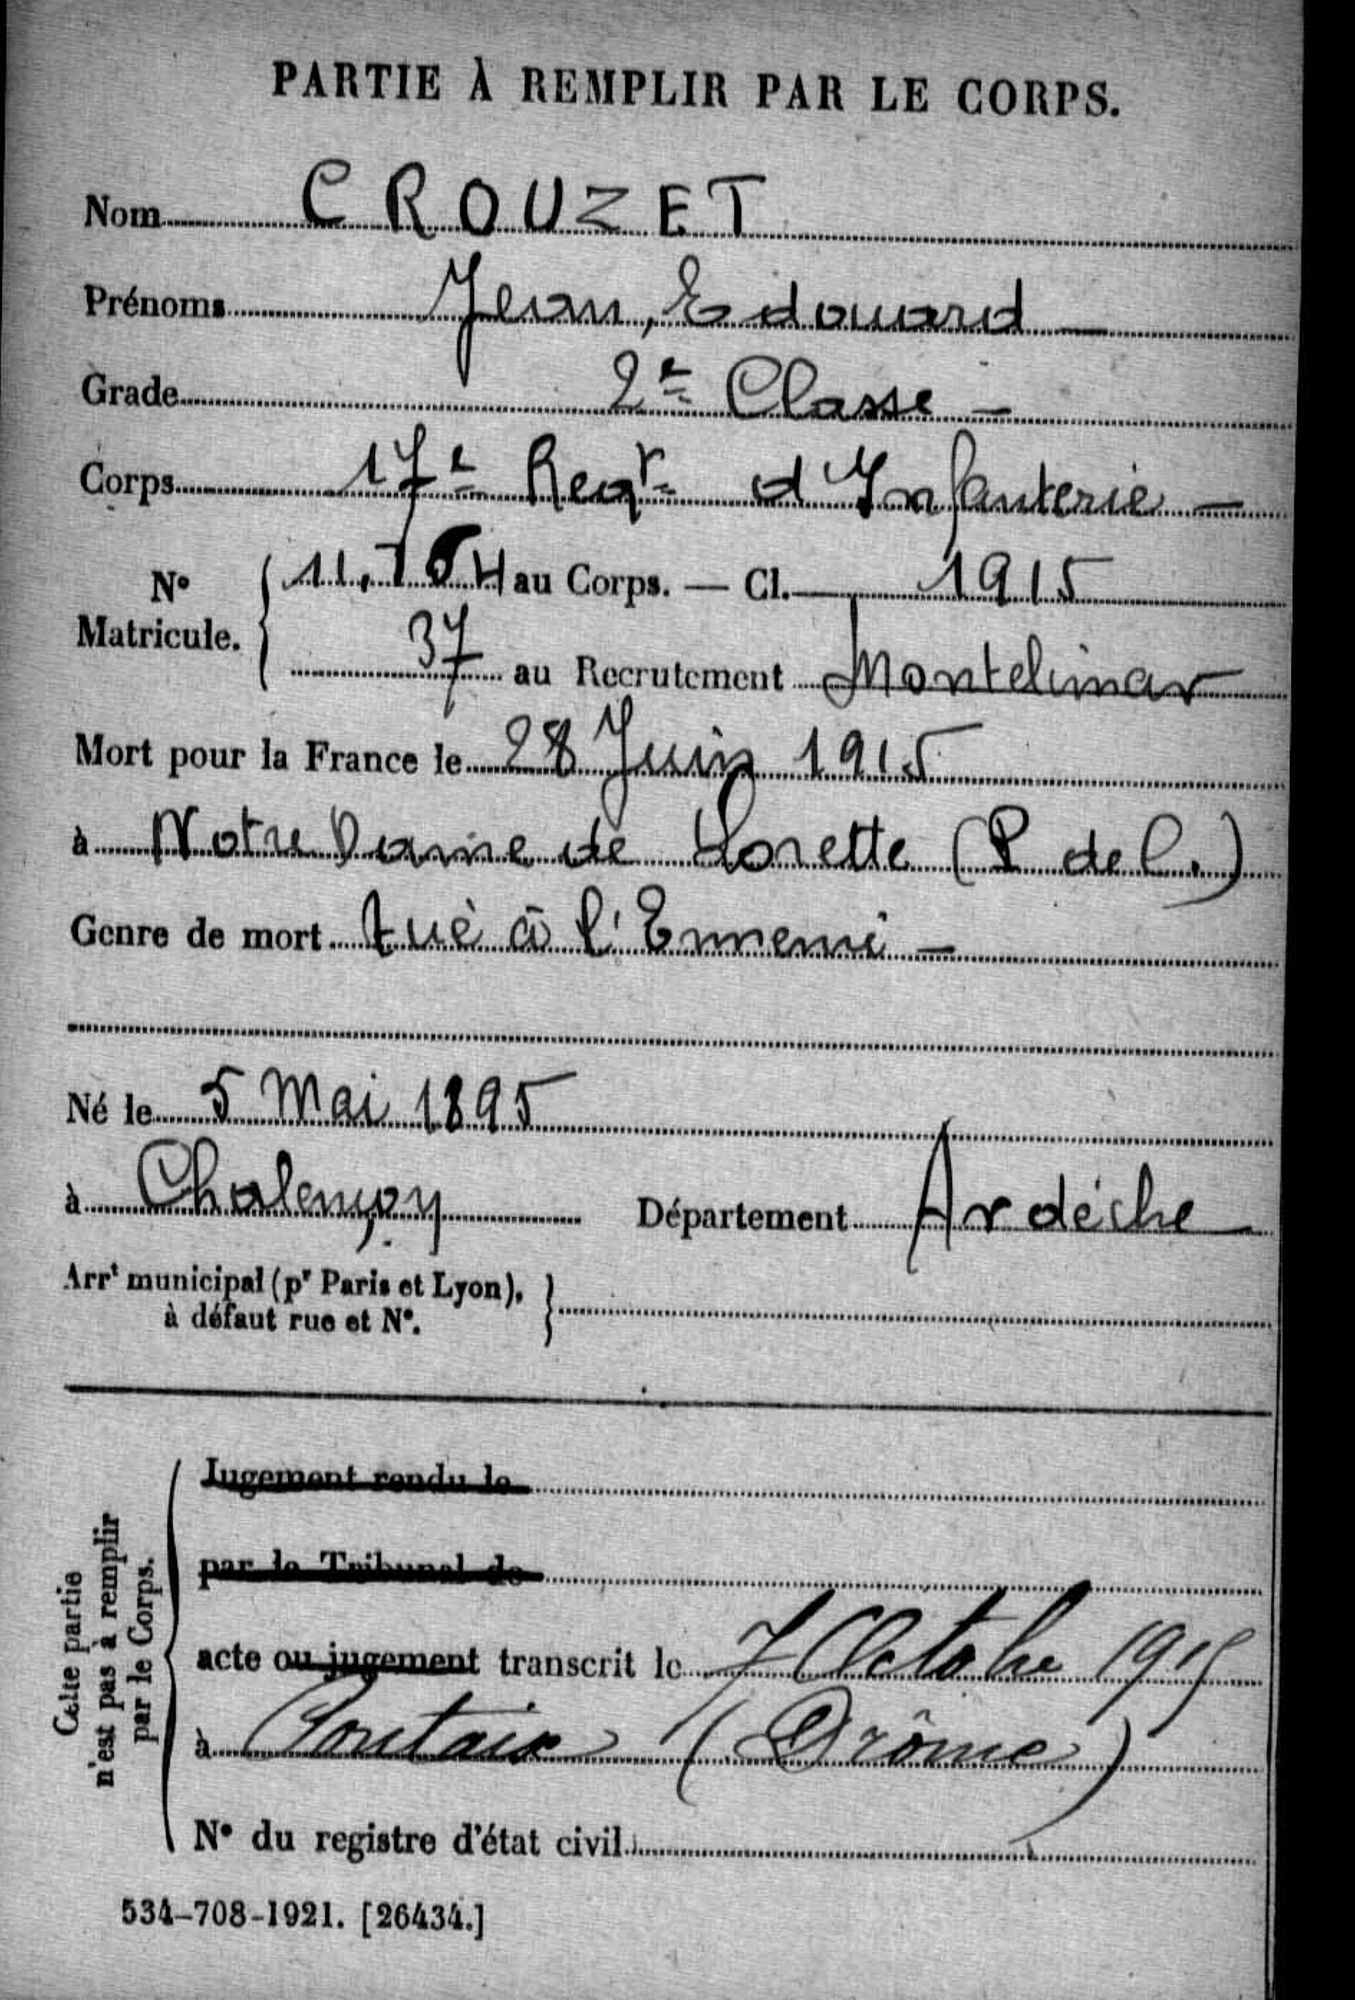 PARTIE À REMPLIR PAR LE CORPS.
Nom CROUZET
Prénoms Jean, Edouard —
Grade 2e Classe —
Corps 17e Regt d'Infanterie —
N° Matricule. 11.764 au Corps. — Cl. 1915
37 au Recrutement Montelimar
Mort pour la France le 28 Juin 1915
à Notre Dame de Lorette (P de C.)
Genre de mort tué à l'Ennemi —
Né le 5 Mai 1895
à Chalençon Département Ardéche
Arrt municipal (pr Paris et Lyon),
à défaut rue et N°.
Cette partie
n'est pas à remplir
par le Corps.
Jugement rendu le
par le Tribunal de
acte ou jugement transcrit le 7 Octobre 1915
à (Drôme)
N° du registre d'état civil
534-708-1921. [26434.]